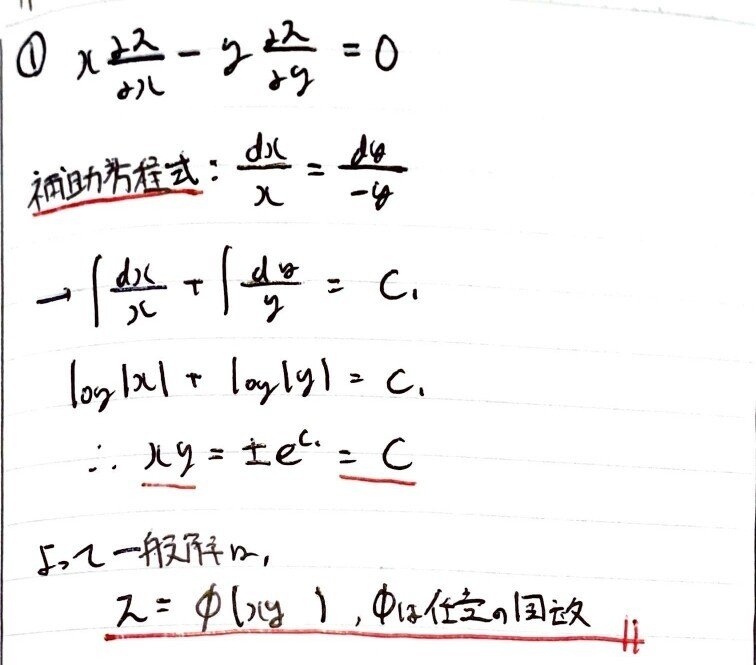 ① x ∂z/∂x - y ∂z/∂y = 0
補助方程式: dx/x = dy/-y
→ ∫ dx/x + ∫ dy/y = C₁
log|x| + log|y| = C₁
∴ xy = ±e^C₁ = C
よって一般解は,
z = φ(xy), φは任意の関数